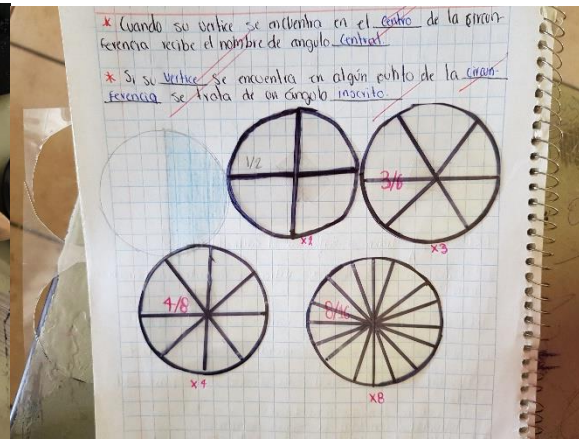 * Cuando su vertice se encuentra en el centro de la circun-
ferencia recibe el nombre de angulo central
* Si su vertice se encuentra en algún punto de la circun-
ferencia se trata de un ángulo inscrito
1/2
x2
3/6
x3
4/8
x4
8/16
x8